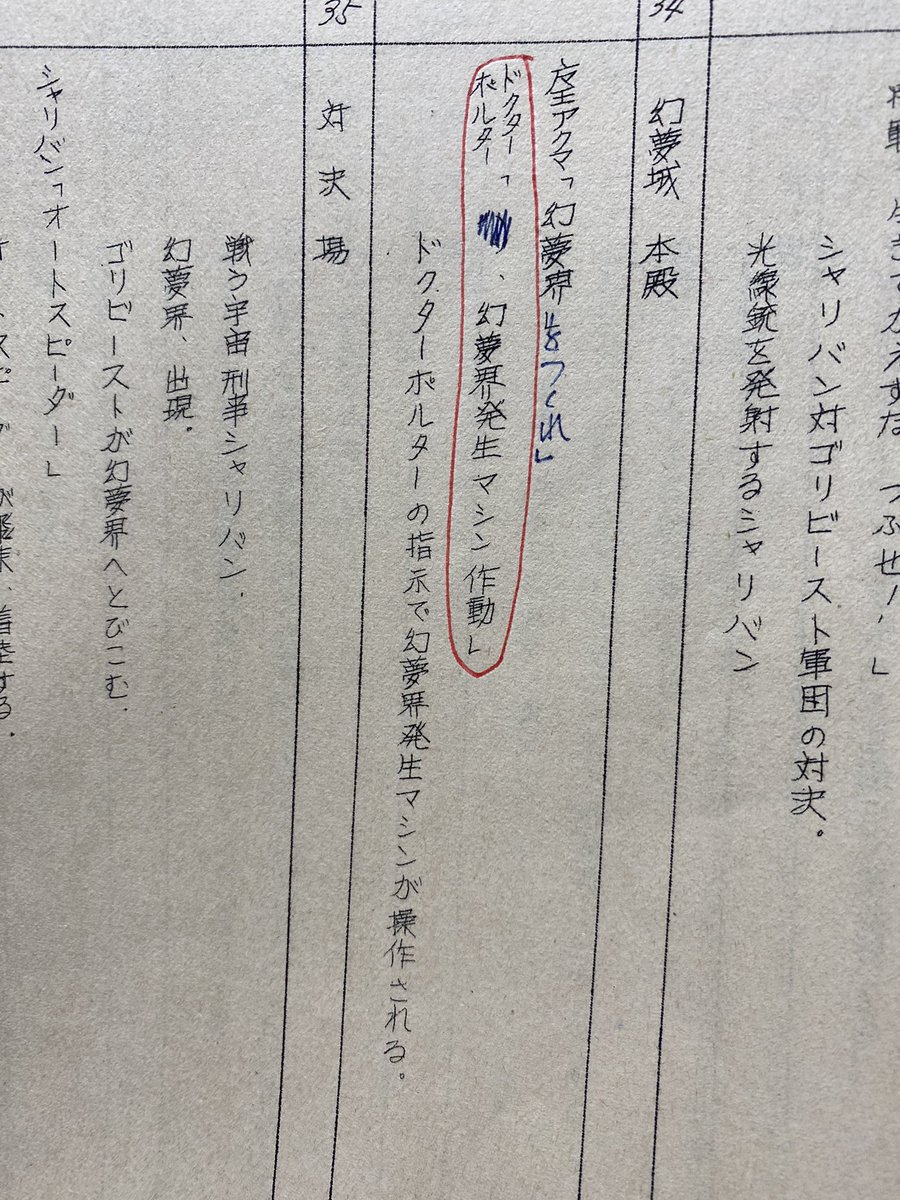 生きてかえすな つぶせ！」
シャリバン対ゴリビースト軍団の対決。
光線銃を発射するシャリバン
34
幻夢城 本殿
魔王アクマ「幻夢界をつくれ」
ドクターポルター「、幻夢界発生マシン作動」
ドクターポルターの指示で幻夢界発生マシンが操作される。
35
対決場
戦う宇宙刑事シャリバン．
幻夢界、出現．
ゴリビーストが幻夢界へとびこむ．
シャリバン「オートスピーダー」
着陸する．